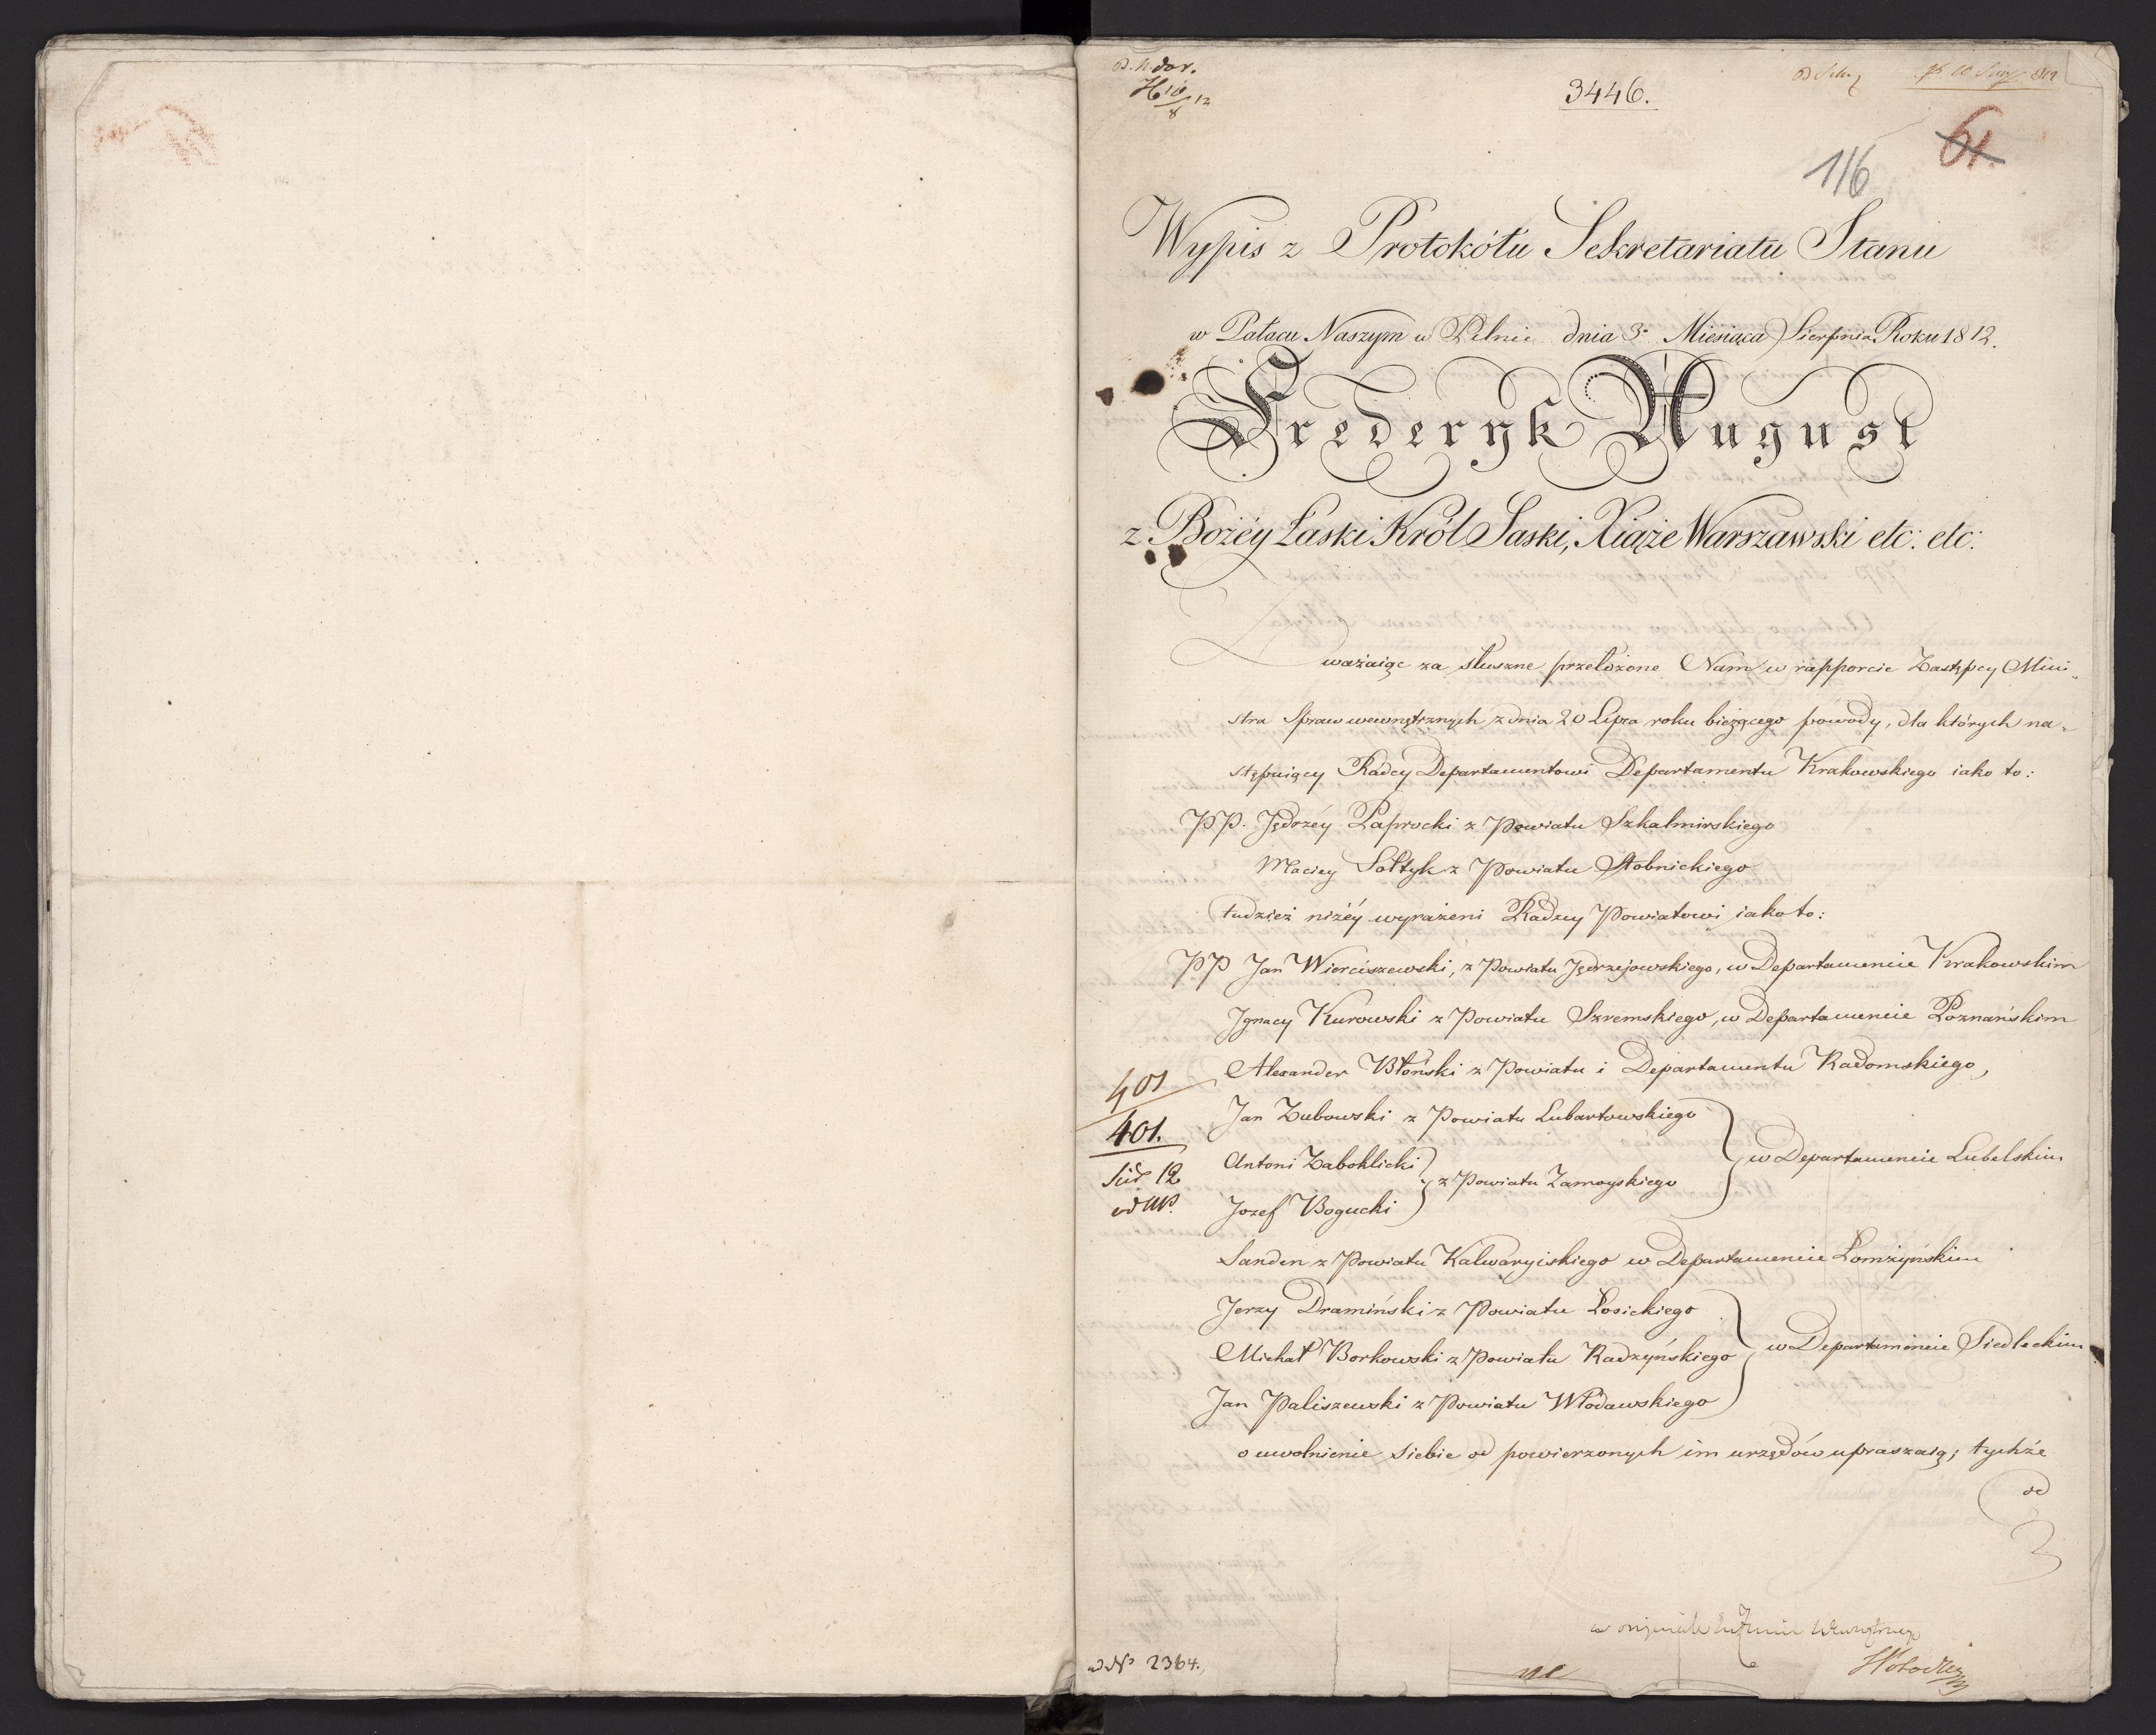 3446.
61.
116
Wypis z Protokółu Sekretariatu Stanu
w Pałacu Naszym w Pilnic dnia 3. Miesiąca Sierpnia Roku 1812.
Frederyk August
z Bożéy Łaski Król Saski, Xiąże Warszawski etc: etc:
Uważaiąc za słuszne przełożone Nam w rapporcie Zastępcy Mini-
stra Spraw wewnętrznych z dnia 20 Lipca roku bieżącego powody, dla których na-
stępuiący Radcy Departamentowi Departamentu Krakowskiego iako to:
PP. Jędrzéy Paprocki z Powiatu Szkalmirskiego
Maciey Sołtyk z Powiatu Stobnickiego
tudzież niżéy wyrażeni Radzcy Powiatowi iako to:
PP Jan Wierciszewski, z Powiatu Jędrzejowskiego, w Departamencie Krakowskim
Jgnacy Kurowski z Powiatu Szremskiego, w Departamencie Poznańskim
Alexander Błoński z Powiatu i Departamentu Radomskiego,
401
401.
Jan Zubowski z Powiatu Lubartowskiego
Antoni Zaboklicki } z Powiatu Zamoyskiego } w Departamencie Lubelskim
Jozef Bogucki
Sanden z Powiatu Kalwaryiskiego w Departamencie Łomżyńskim
Jerzy Dramiński z Powiatu Łosickiego
Michał Borkowski z Powiatu Radzyńskiego } w Departamencie Siedleckim
Jan Paliszewski z Powiatu Włodawskiego
o uwolnienie siebie od powierzonych im urzędów upraszaią; tychże
od
ad No 2364.